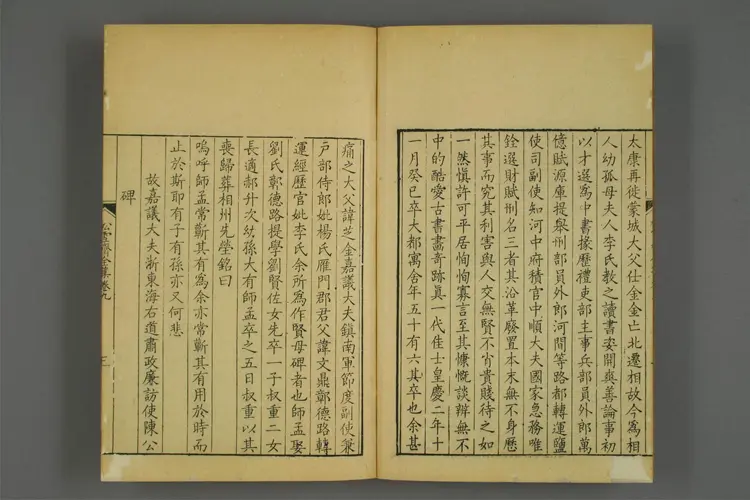 太康再徙蒙城大父仕金金亡北遷相故今爲相
人幼孤母夫人李氏教之讀書姿開爽善論事初
以才選爲中書掾歷禮吏部主事兵部員外郎萬
億賦源庫提舉刑部員外郎河間等路都轉運鹽
使司副使知河中府積官中順大夫國家急務唯
銓選財賦刑名三者其沿革廢置本末無不身歷
其事而究其利害與人交無賢不肖貴賤待之如
一然愼許可平居恂恂寡言至其慷慨談辯無不
中的酷愛古書畵奇跡眞一代佳士皇慶二年十
一月癸巳卒大都寓舍年五十有六其卒也余甚
痛之大父諱芝金嘉議大夫鎭南軍節度副使兼
戸部侍郎妣楊氏雁門郡君父諱文鼎彰德路轉
運經歷官妣李氏余所爲作賢母碑者也師孟娶
劉氏彰德路提學劉賢佐女先卒一子叔重二女
長適郝升次幼孫大有師孟卒之五日叔重以其
喪歸葬相州先塋銘曰
嗚呼師孟常蘄其有爲余亦常蘄其有用於時而
止於斯耶有子有孫亦又何悲
碑
故嘉議大夫浙東海右道肅政廉訪使陳公
卷九
三